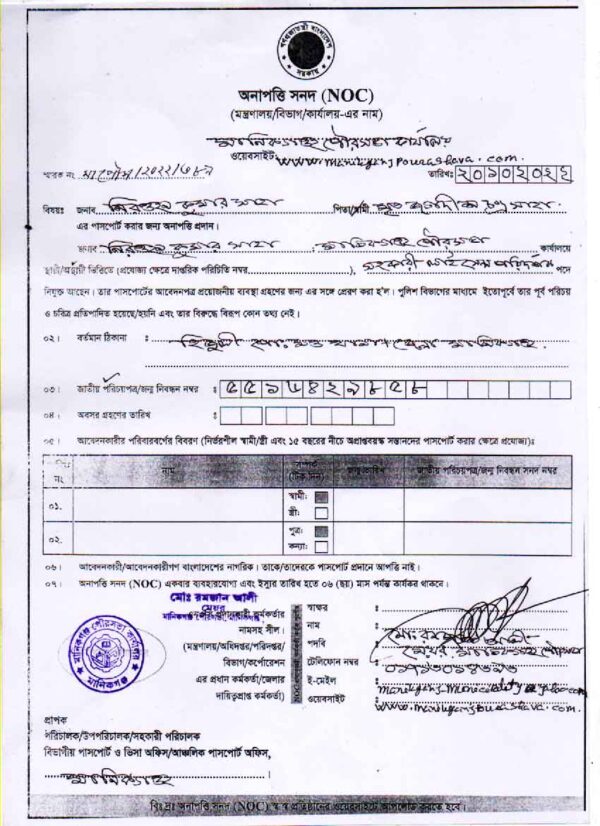 গণপ্রজাতন্ত্রী বাংলাদেশ
সরকার
অনাপত্তি সনদ (NOC)
(মন্ত্রণালয়/বিভাগ/কার্যালয়-এর নাম)
মানিকগঞ্জ পৌরসভা কার্যালয়
ওয়েবসাইট:
স্মারক নং
তারিখঃ ২০১০২০২২
বিষয়ঃ জনাব নিরঞ্জন কুমার সাহা পিতা/স্বামী মৃত
এর পাসপোর্ট করার জন্য অনাপত্তি প্রদান।
জনাব নিরঞ্জন কুমার সাহা মানিকগঞ্জ পৌরসভা কার্যালয়ে
স্থায়ী/অস্থায়ী ভিত্তিতে (প্রযোজ্য ক্ষেত্রে দাপ্তরিক পরিচিতি নম্বর), সহকারী লাইসেন্স পরিদর্শক পদে
নিযুক্ত আছেন। তার পাসপোর্টের আবেদনপত্র প্রয়োজনীয় ব্যবস্থা গ্রহণের জন্য এর সঙ্গে প্রেরণ করা হ'ল। পুলিশ বিভাগের মাধ্যমে ইতোপূর্বে তার পূর্ব পরিচয়
ও চরিত্র প্রতিপাদিত হয়েছে/হয়নি এবং তার বিরুদ্ধে বিরূপ কোন তথ্য নেই।
০২। বর্তমান ঠিকানা :
০৩। জাতীয় পরিচয়পত্র/জন্ম নিবন্ধন নম্বর :
০৪। অবসর গ্রহণের তারিখ :
০৫। আবেদনকারীর পরিবারবর্গের বিবরণ (নির্ভরশীল স্বামী/স্ত্রী এবং ১৫ বছরের নীচে অপ্রাপ্তবয়স্ক সন্তানদের পাসপোর্ট করার ক্ষেত্রে প্রযোজ্য)ঃ
নং নাম সম্পর্ক জন্ম তারিখ জাতীয় পরিচয়পত্র/জন্ম নিবন্ধন সনদ নম্বর
০১. স্বামী:
স্ত্রী:
০২. পুত্র:
কন্যা:
০৬। আবেদনকারী/আবেদনকারীগণ বাংলাদেশের নাগরিক। তাকে/তাদেরকে পাসপোর্ট প্রদানে আপত্তি নাই।
০৭। অনাপত্তি সনদ (NOC) একবার ব্যবহারযোগ্য এবং ইস্যুর তারিখ হতে ০৬ (ছয়) মাস পর্যন্ত কার্যকর থাকবে।
মোঃ রমজান আলী
মেয়র
কর্মকর্তার
নামসহ সীল।
(মন্ত্রণালয়/অধিদপ্তর/পরিদপ্তর/
বিভাগ/কর্পোরেশন
এর প্রধান কর্মকর্তা/জেলার
দায়িত্বপ্রাপ্ত কর্মকর্তা)
স্বাক্ষর :
নাম :
পদবি : মেয়র মানিকগঞ্জ পৌরসভা
টেলিফোন নম্বর :
ই-মেইল :
ওয়েবসাইট :
মানিকগঞ্জ পৌরসভা কার্যালয়
মানিকগঞ্জ
প্রাপক
পরিচালক/উপপরিচালক/সহকারী পরিচালক
বিভাগীয় পাসপোর্ট ও ভিসা অফিস/আঞ্চলিক পাসপোর্ট অফিস,
মানিকগঞ্জ
বিঃ দ্রঃ অনাপত্তি সনদ (NOC) স্ব স্ব প্রতিষ্ঠানের ওয়েবসাইটে আপলোড করতে হবে।